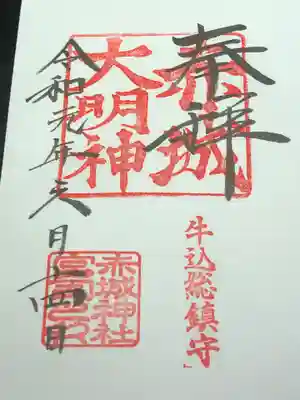 奉拝
赤城
大明神
牛込総鎮守」
令和元年 月 日
赤城神社
宮司之印